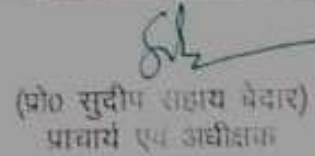 (प्रो० सुदीप सहाय बेदार)
प्राचार्य एवं अधीक्षक